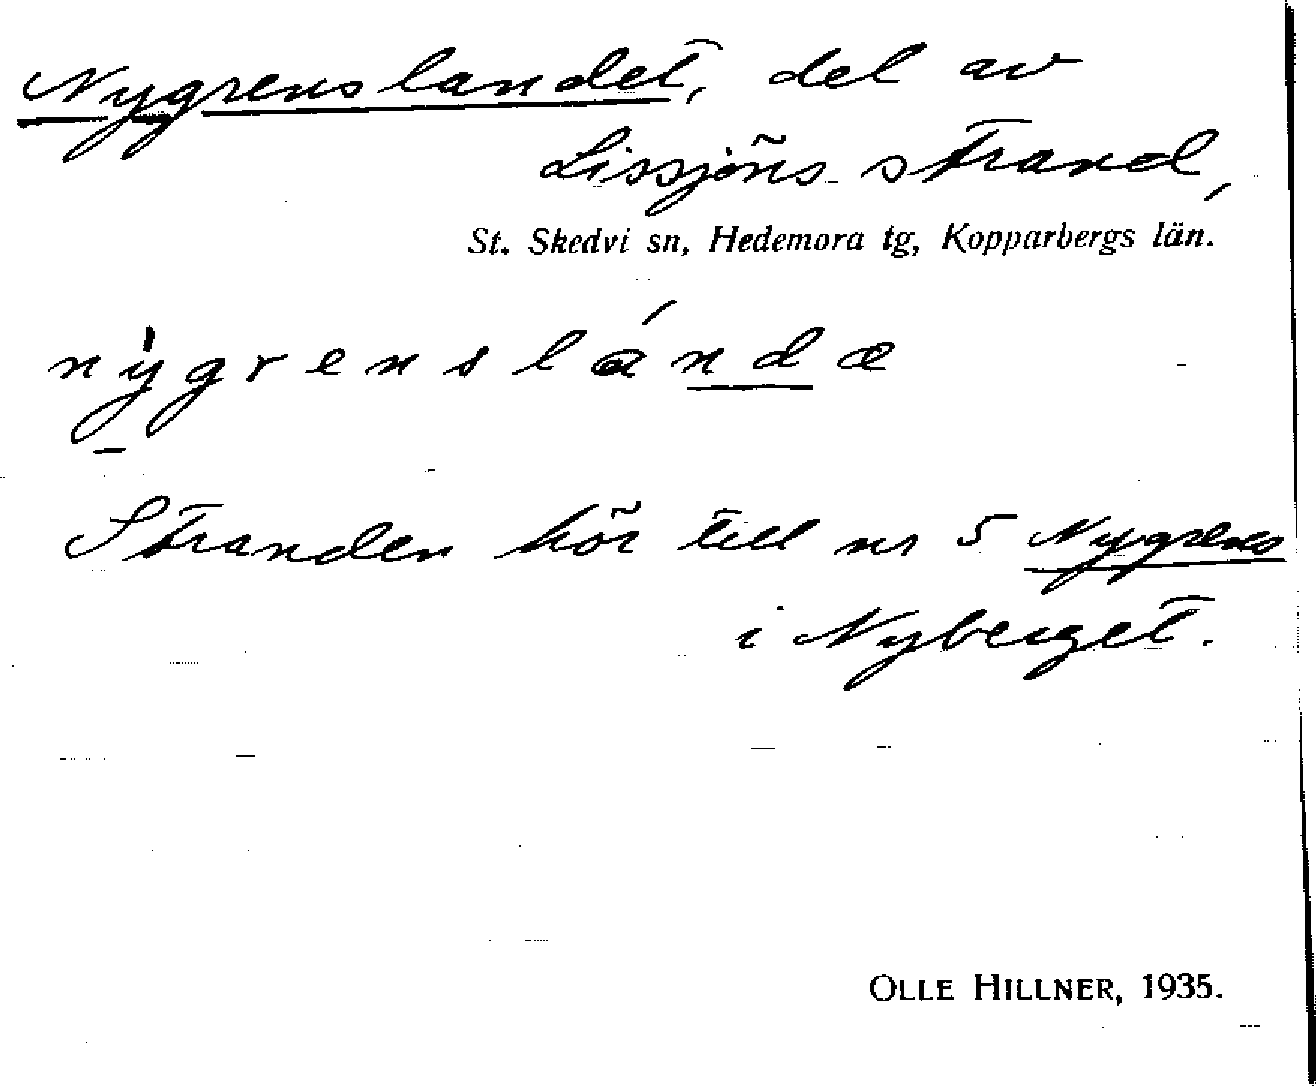 Nygrenslandet, del av
Lissjöns strand,
St. Skedvi sn, Hedemora tg, Kopparbergs län.
nỳgrenslándæ
Stranden hör till nr 5 Nygrens
i Nyberget.
OLLE HILLNER, 1935.